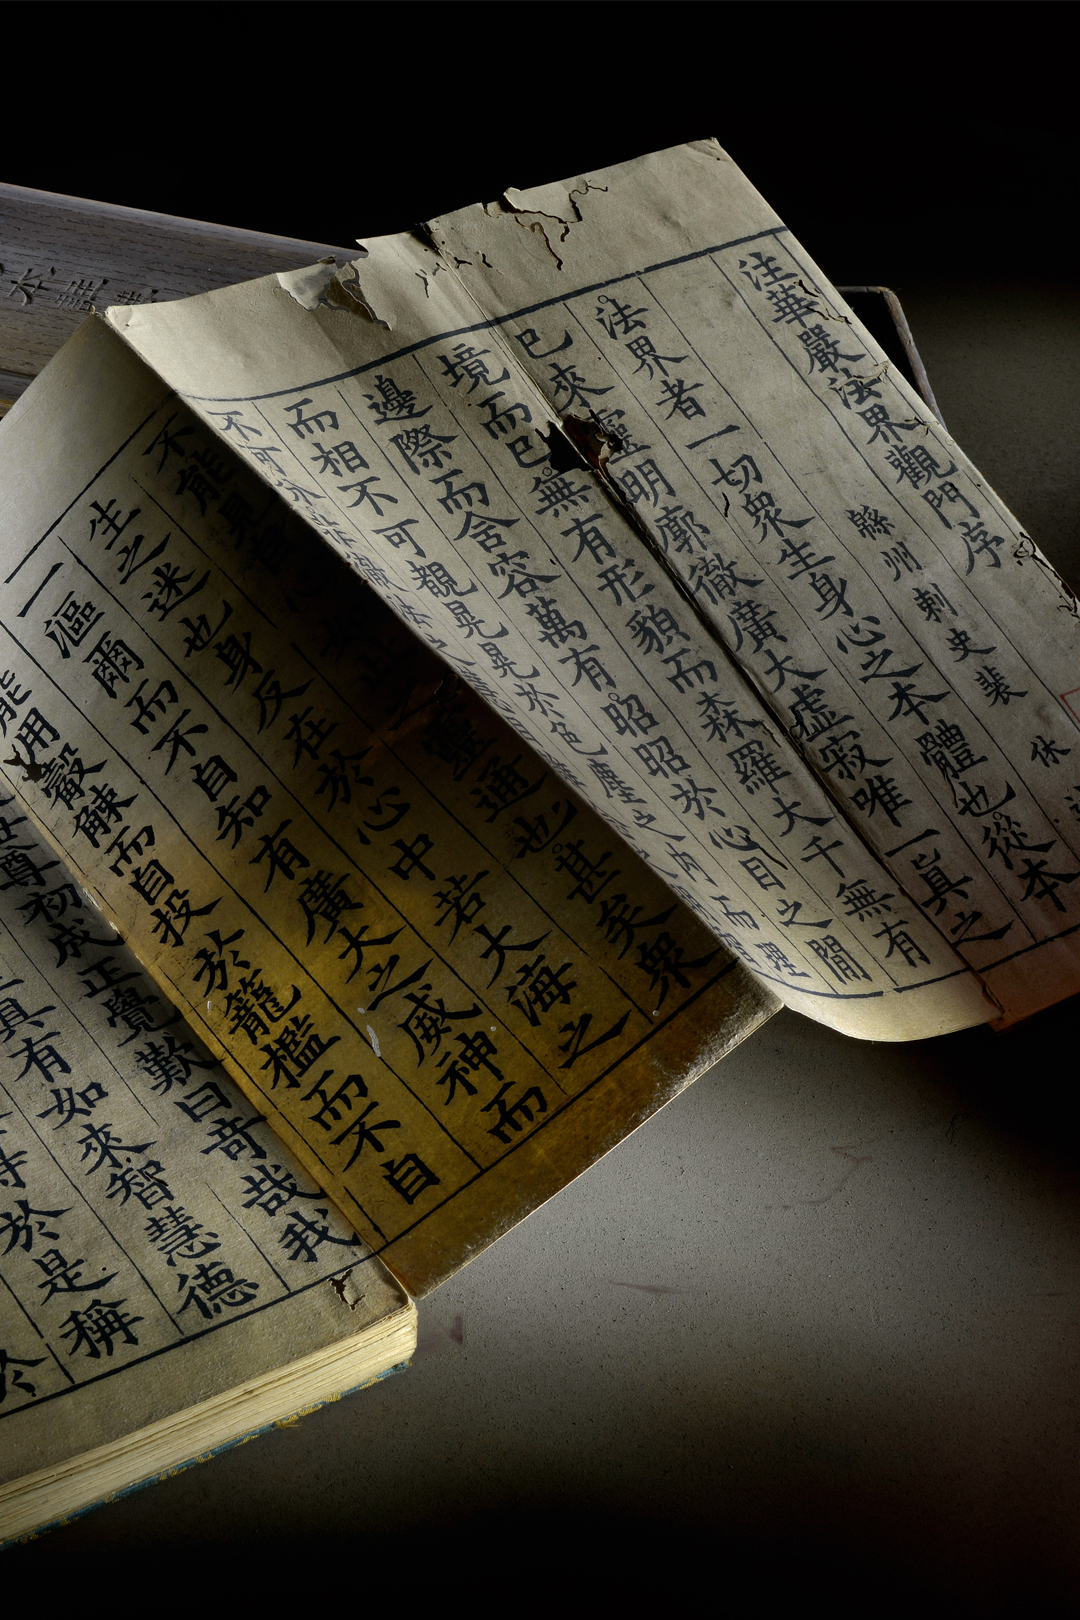 注華嚴法界觀門序
緜州刺史裴休
法界者一切衆生身心之本體也從本
已來靈明廓徹廣大虛寂唯一眞之
境而已無有形貌而森羅大千無有
邊際而含容萬有昭昭於心目之間
而相不可覩晃晃於色塵之內而理
不可分非徹法之
不能見自心如此之靈通也甚矣衆
生之迷也身反在於心中若大海之
一漚爾而不自知有廣大之威神而
能用觳觫而自投於籠檻而不自
世尊初成正覺歎曰奇哉我
具有如來智慧德
等於是稱
於